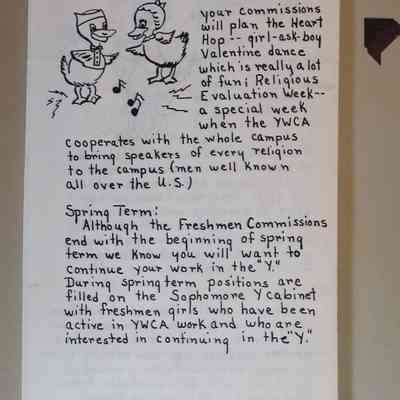 your commissions
will plan the Heart
Hop--- girl-ask-boy
Valentine dance
which is really a lot
of fun; Religious
Evaluation Week--
a special week
when the YWCA
cooperates with the whole campus
to bring speakers of every religion
to the campus (men well known
all over the U.S.)
Spring Term:
Although the Freshmen Commissions
end with the beginning of spring
term we know you will want to
continue your work in the "Y."
During spring term positions are
filled on the Sophomore Y cabinet
with freshmen girls who have been
active in YWCA work and who are
interested in continuing in the "Y."